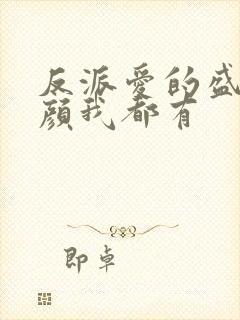 反派爱的盛
颜我都有
即卓